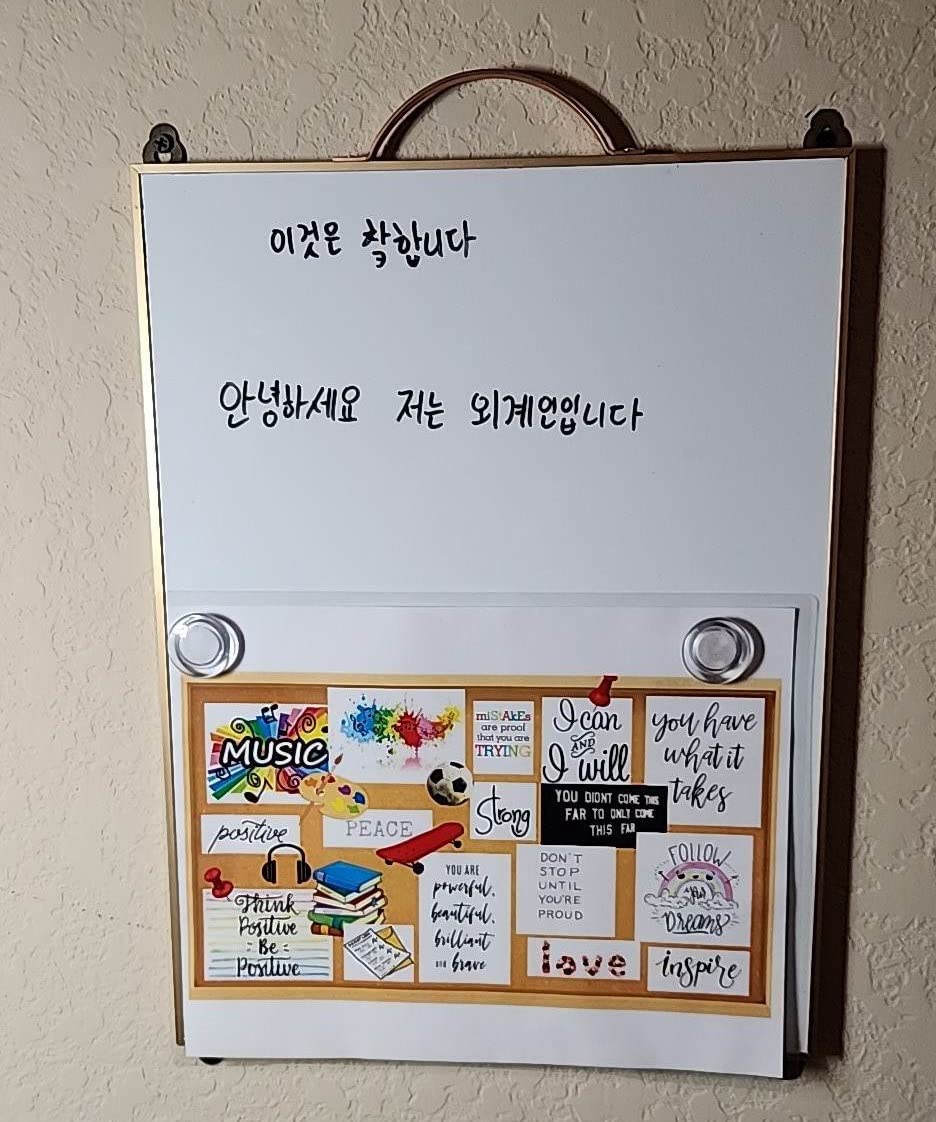 이것은 착합니다
안녕하세요 저는 외계인입니다
MUSIC
miStAkEs
are proof
that you are
TRYING
I can
AND
I will
you have
what it
takes
Strong
YOU DIDNT COME THIS
FAR TO ONLY COME
THIS FAR
positive
PEACE
Think
Positive
Be
Positive
YOU ARE
powerful,
beautiful,
brilliant
and brave
DON'T
STOP
UNTIL
YOU'RE
PROUD
FOLLOW
your
Dreams
love
inspire